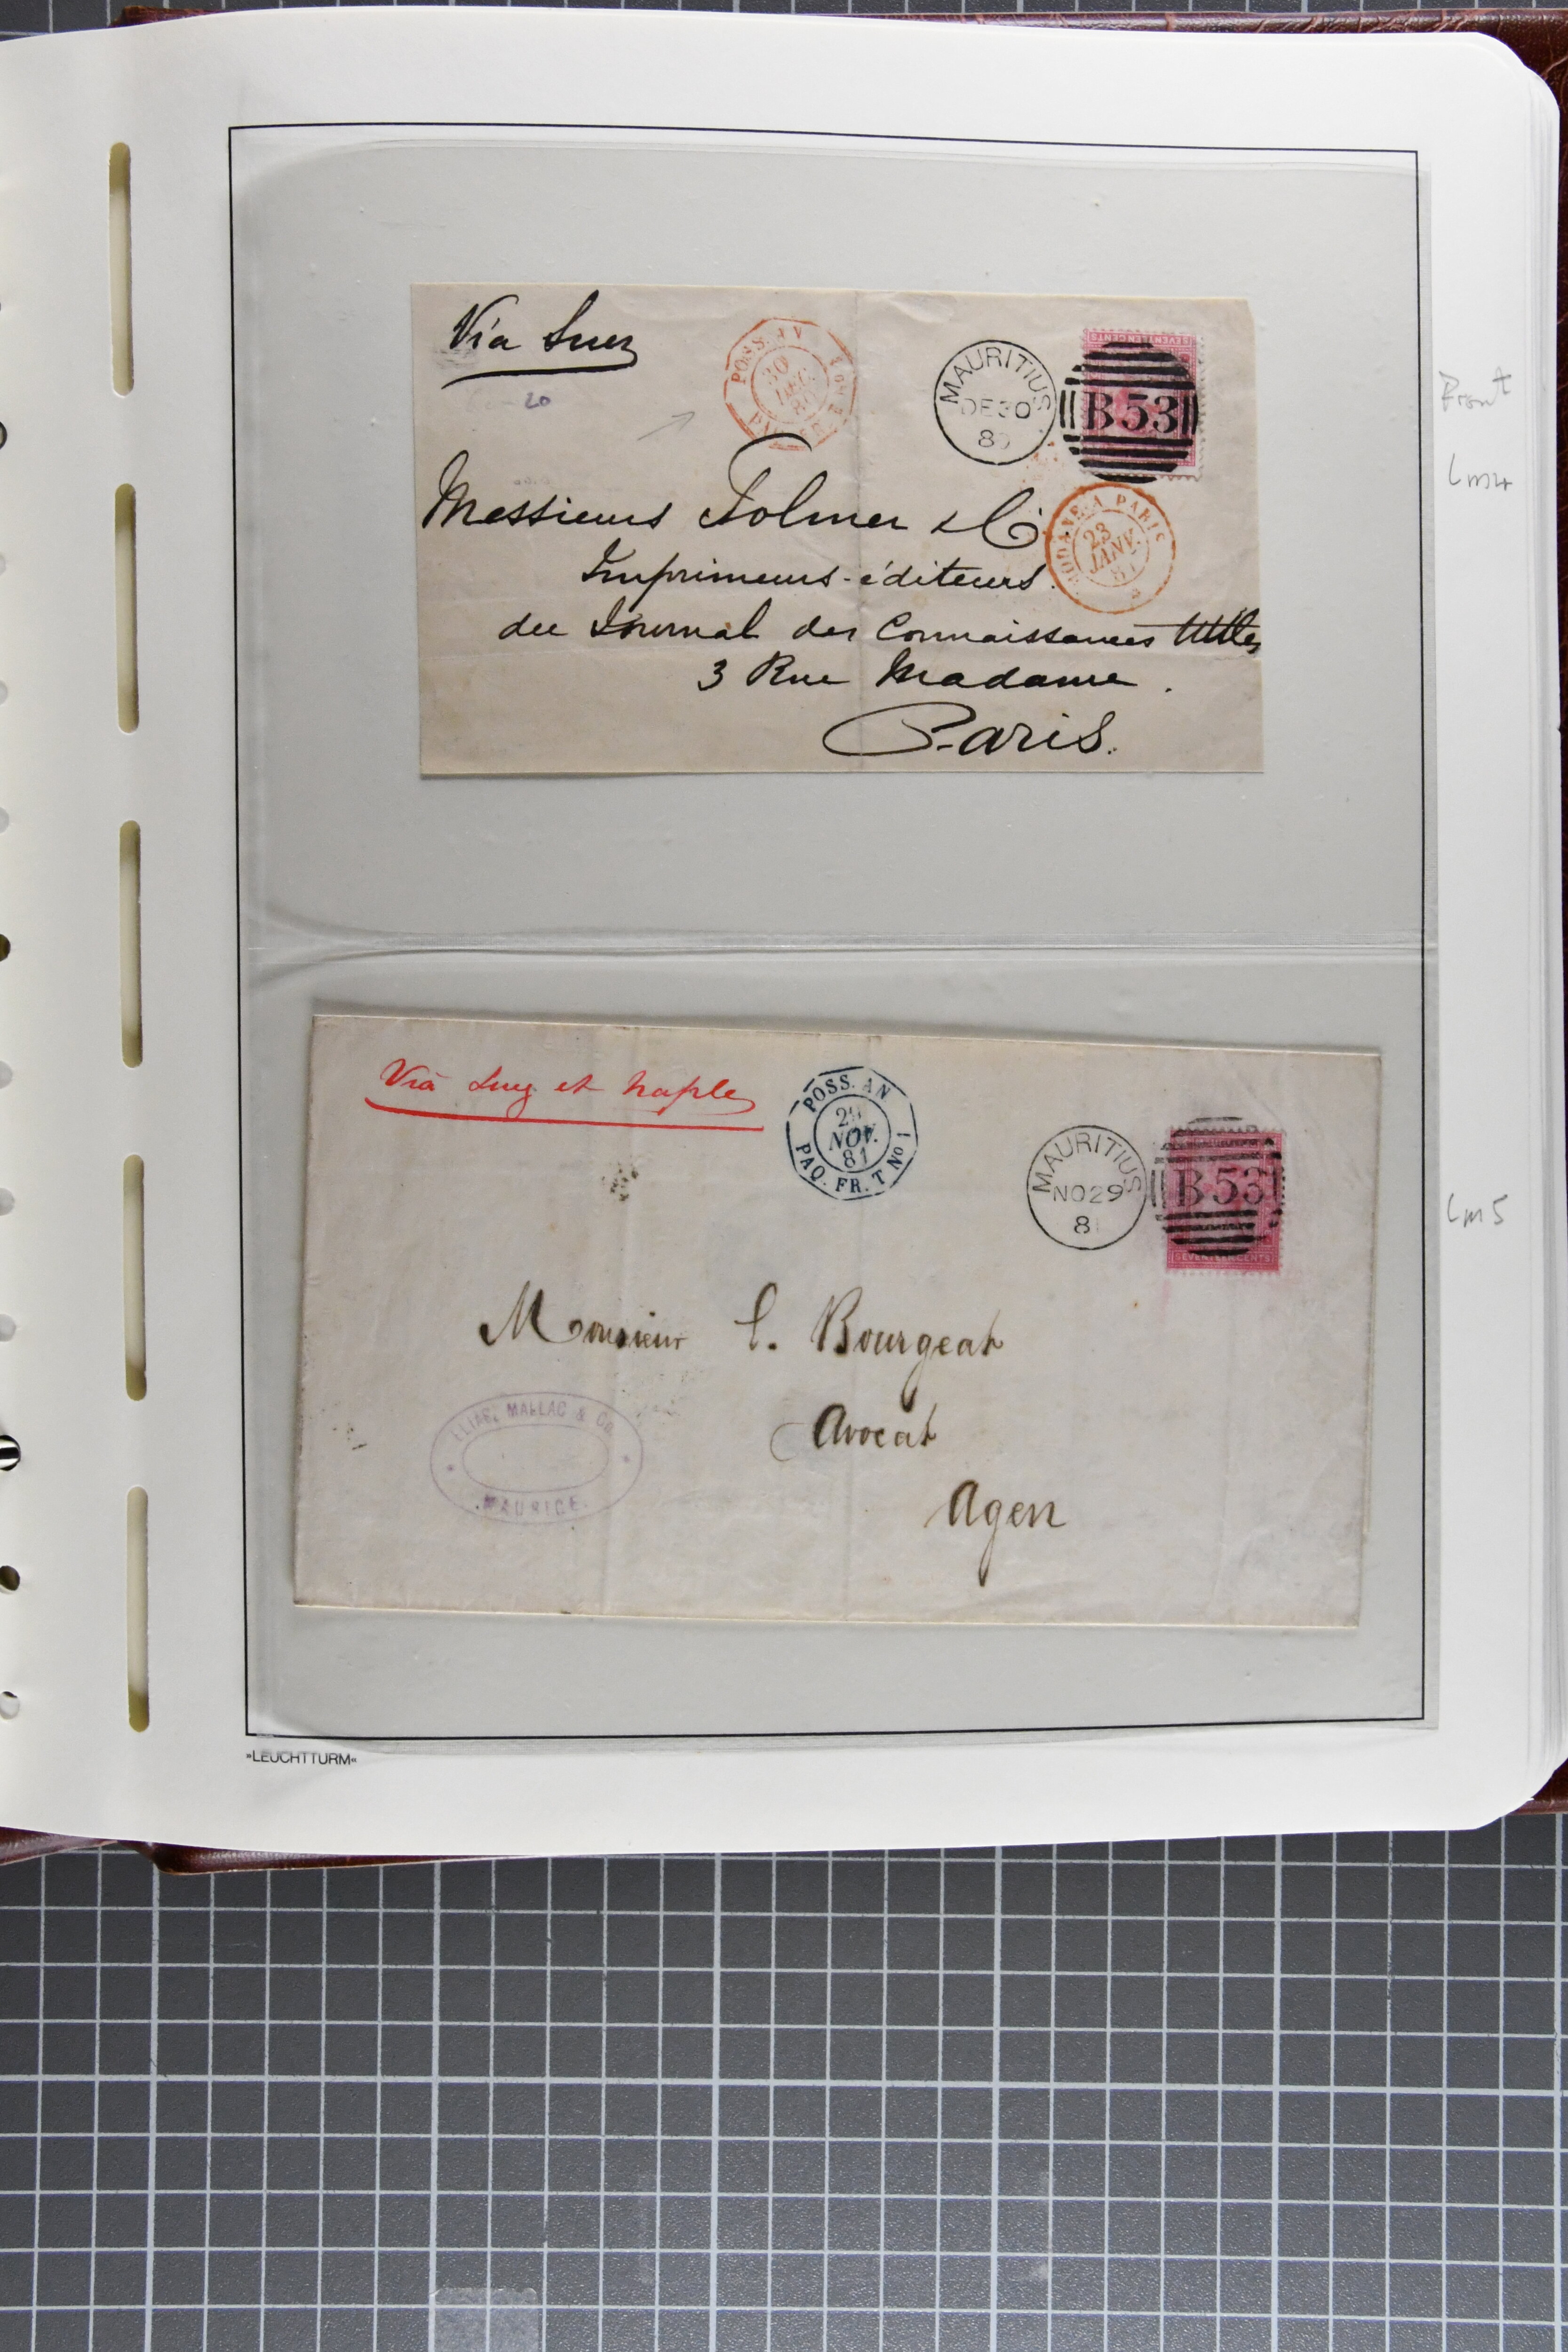 Via Suez
20
POSS. AN
30
DEC.
80
PAQ. FR.
MAURITIUS
DE30
8
B53
SEVENTEEN CENTS
MODANE A PARIS
23
JANV.
81
Messieurs Folmer & Cie
Imprimeurs-éditeurs
du Journal des Connaissances Utiles
3 Rue Madame.
Paris.
Front
Lm4
Via Suez et Naples
POSS. AN
29
NOV.
81
PAQ. FR. T No 1
MAURITIUS
NO29
81
B53
SEVENTEEN CENTS
Lm5
Monsieur C. Bourgeat
Avocat
Agen
ELIAS, MALLAC & Co.
MAURICE.
»LEUCHTTURM«